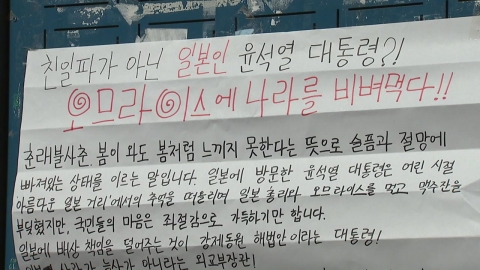 친일파가 아닌 일본인 윤석열 대통령?!
오므라이스에 나라를 비벼먹다!!
춘래불사춘. 봄이 와도 봄처럼 느끼지 못한다는 뜻으로 슬픔과 절망에
빠져있는 상태를 이르는 말입니다. 일본에 방문한 윤석열 대통령은 어린 시절
아름다운 일본 거리에서의 추억을 떠올리며 일본 총리와 오므라이스를 먹고 맥주잔을
부딪혔지만, 국민들의 마음은 좌절감으로 가득하기만 합니다.
일본에 배상 책임을 덜어주는 것이 강제동원 해법안이라는 대통령!
사과가 능사가 아니라는 외교부장관!